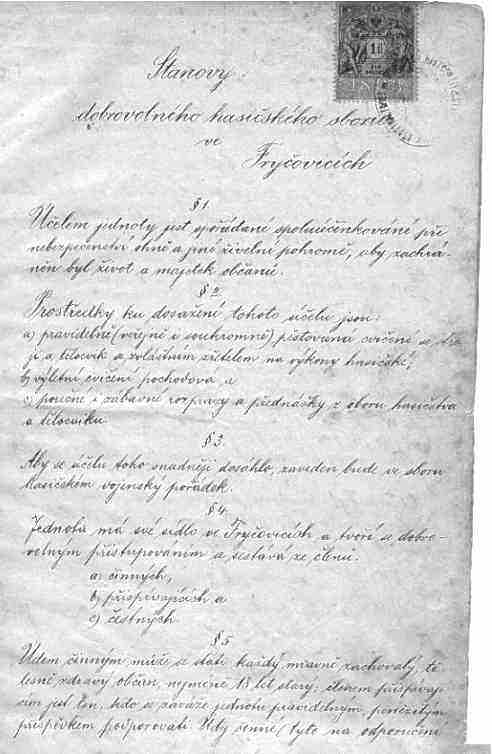 Stanovy
dobrovolného hasičského sboru
ve
Fryčovicích
§ 1.
Účelem jednoty jest spořádané spoluúčinkování při
nebezpečenství ohně a jiné živelní pohromě, aby zachrá-
něn byl život a majetek občanů.
§ 2.
Prostředky ku dosažení tohoto účelu jsou:
a) pravidelné (veřejné i soukromné) pěstování cvičení se
a tělocvik a zvláštním zřetelem na výkony hasičské,
b) výletní cvičení pochodová a
c) poučné i zábavné rozpravy a přednášky z oboru hasičstva
a tělocviku
§ 3.
Aby se účelu toho snadněji dosáhlo, zaveden bude ve sboru
hasičském vojenský pořádek.
§ 4.
Jednota má své sídlo ve Fryčovicích a tvoří se dobro-
volným přistupováním a sestává ze členů:
a) činných,
b) přispívajících a
c) čestných.
§ 5
Údem činným může se státi každý mravně zachovalý, tě
lesně zdravý občan, nejméně 18 let starý; členem přispívají
cím jest ten, kdo se zaváže jednotu pravidelným, peněžitým
příspěvkem podporovati. Údy čestné, tyto na odporučení